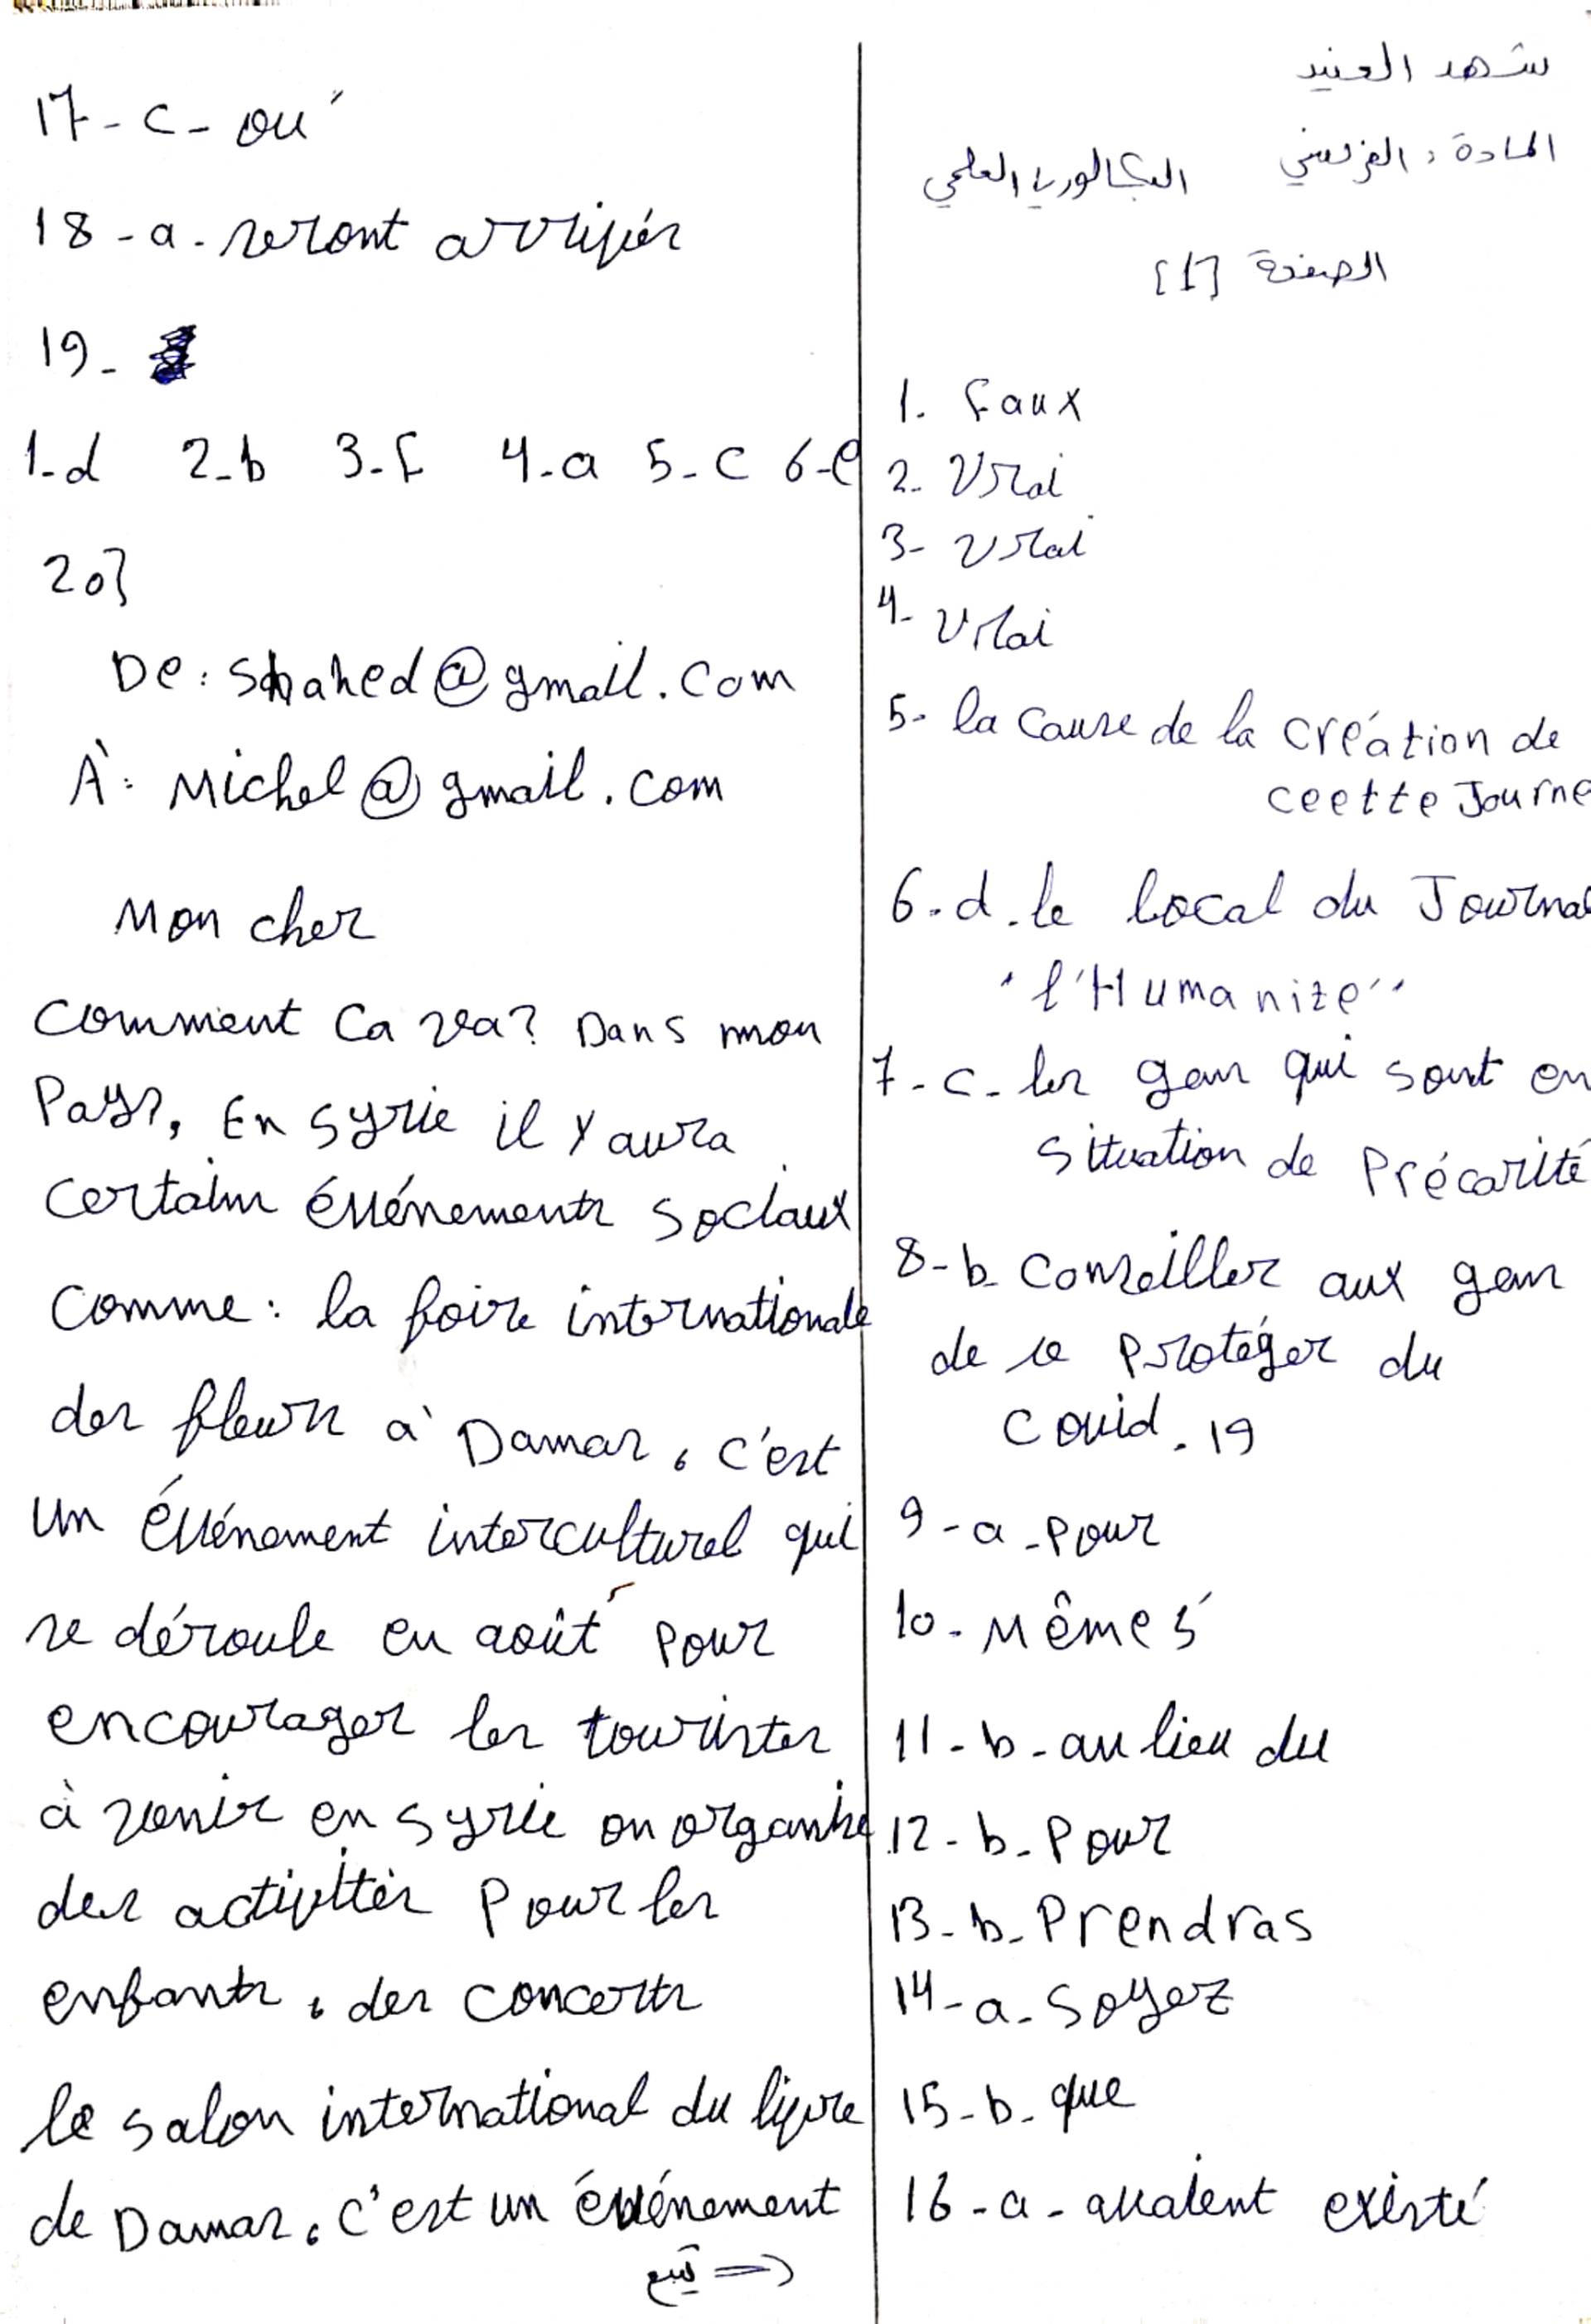 شهد العنيد
المادة: الفرنسي البكالوريا العلمي
الصفحة [1]
1. Faux
2. Vrai
3- Vrai
4- Vrai
5- la cause de la création de
ceette Journe
6-d-le local du Journal
"l'Humanize"
7-c-les gens qui sont en
situation de Précarité
8-b Conseiller aux gens
de se Protéger du
Covid-19
9-a-Pour
10-Mêmes
11-b-au lieu du
12-b-Pour
13-b-Prendras
14-a-Soyez
15-b-que
16-a-avaient existé
17-c-où
18-a-seront arrivés
19-
1-d 2-b 3-F 4-a 5-c 6-e
20}
De: Shahed@gmail.com
À: Michel@gmail.com
Mon cher
Comment Ca va? Dans mon
Pays, En Syrie il y aura
certains événements sociaux
Comme: la foire internationale
des fleurs à Damas, c'est
un événement interculturel qui
se déroule en août Pour
encourager les touristes
à venir en Syrie on organise
des activités Pour les
enfants, des concerts
le salon international du livre
de Damas, c'est un événement
يتبع